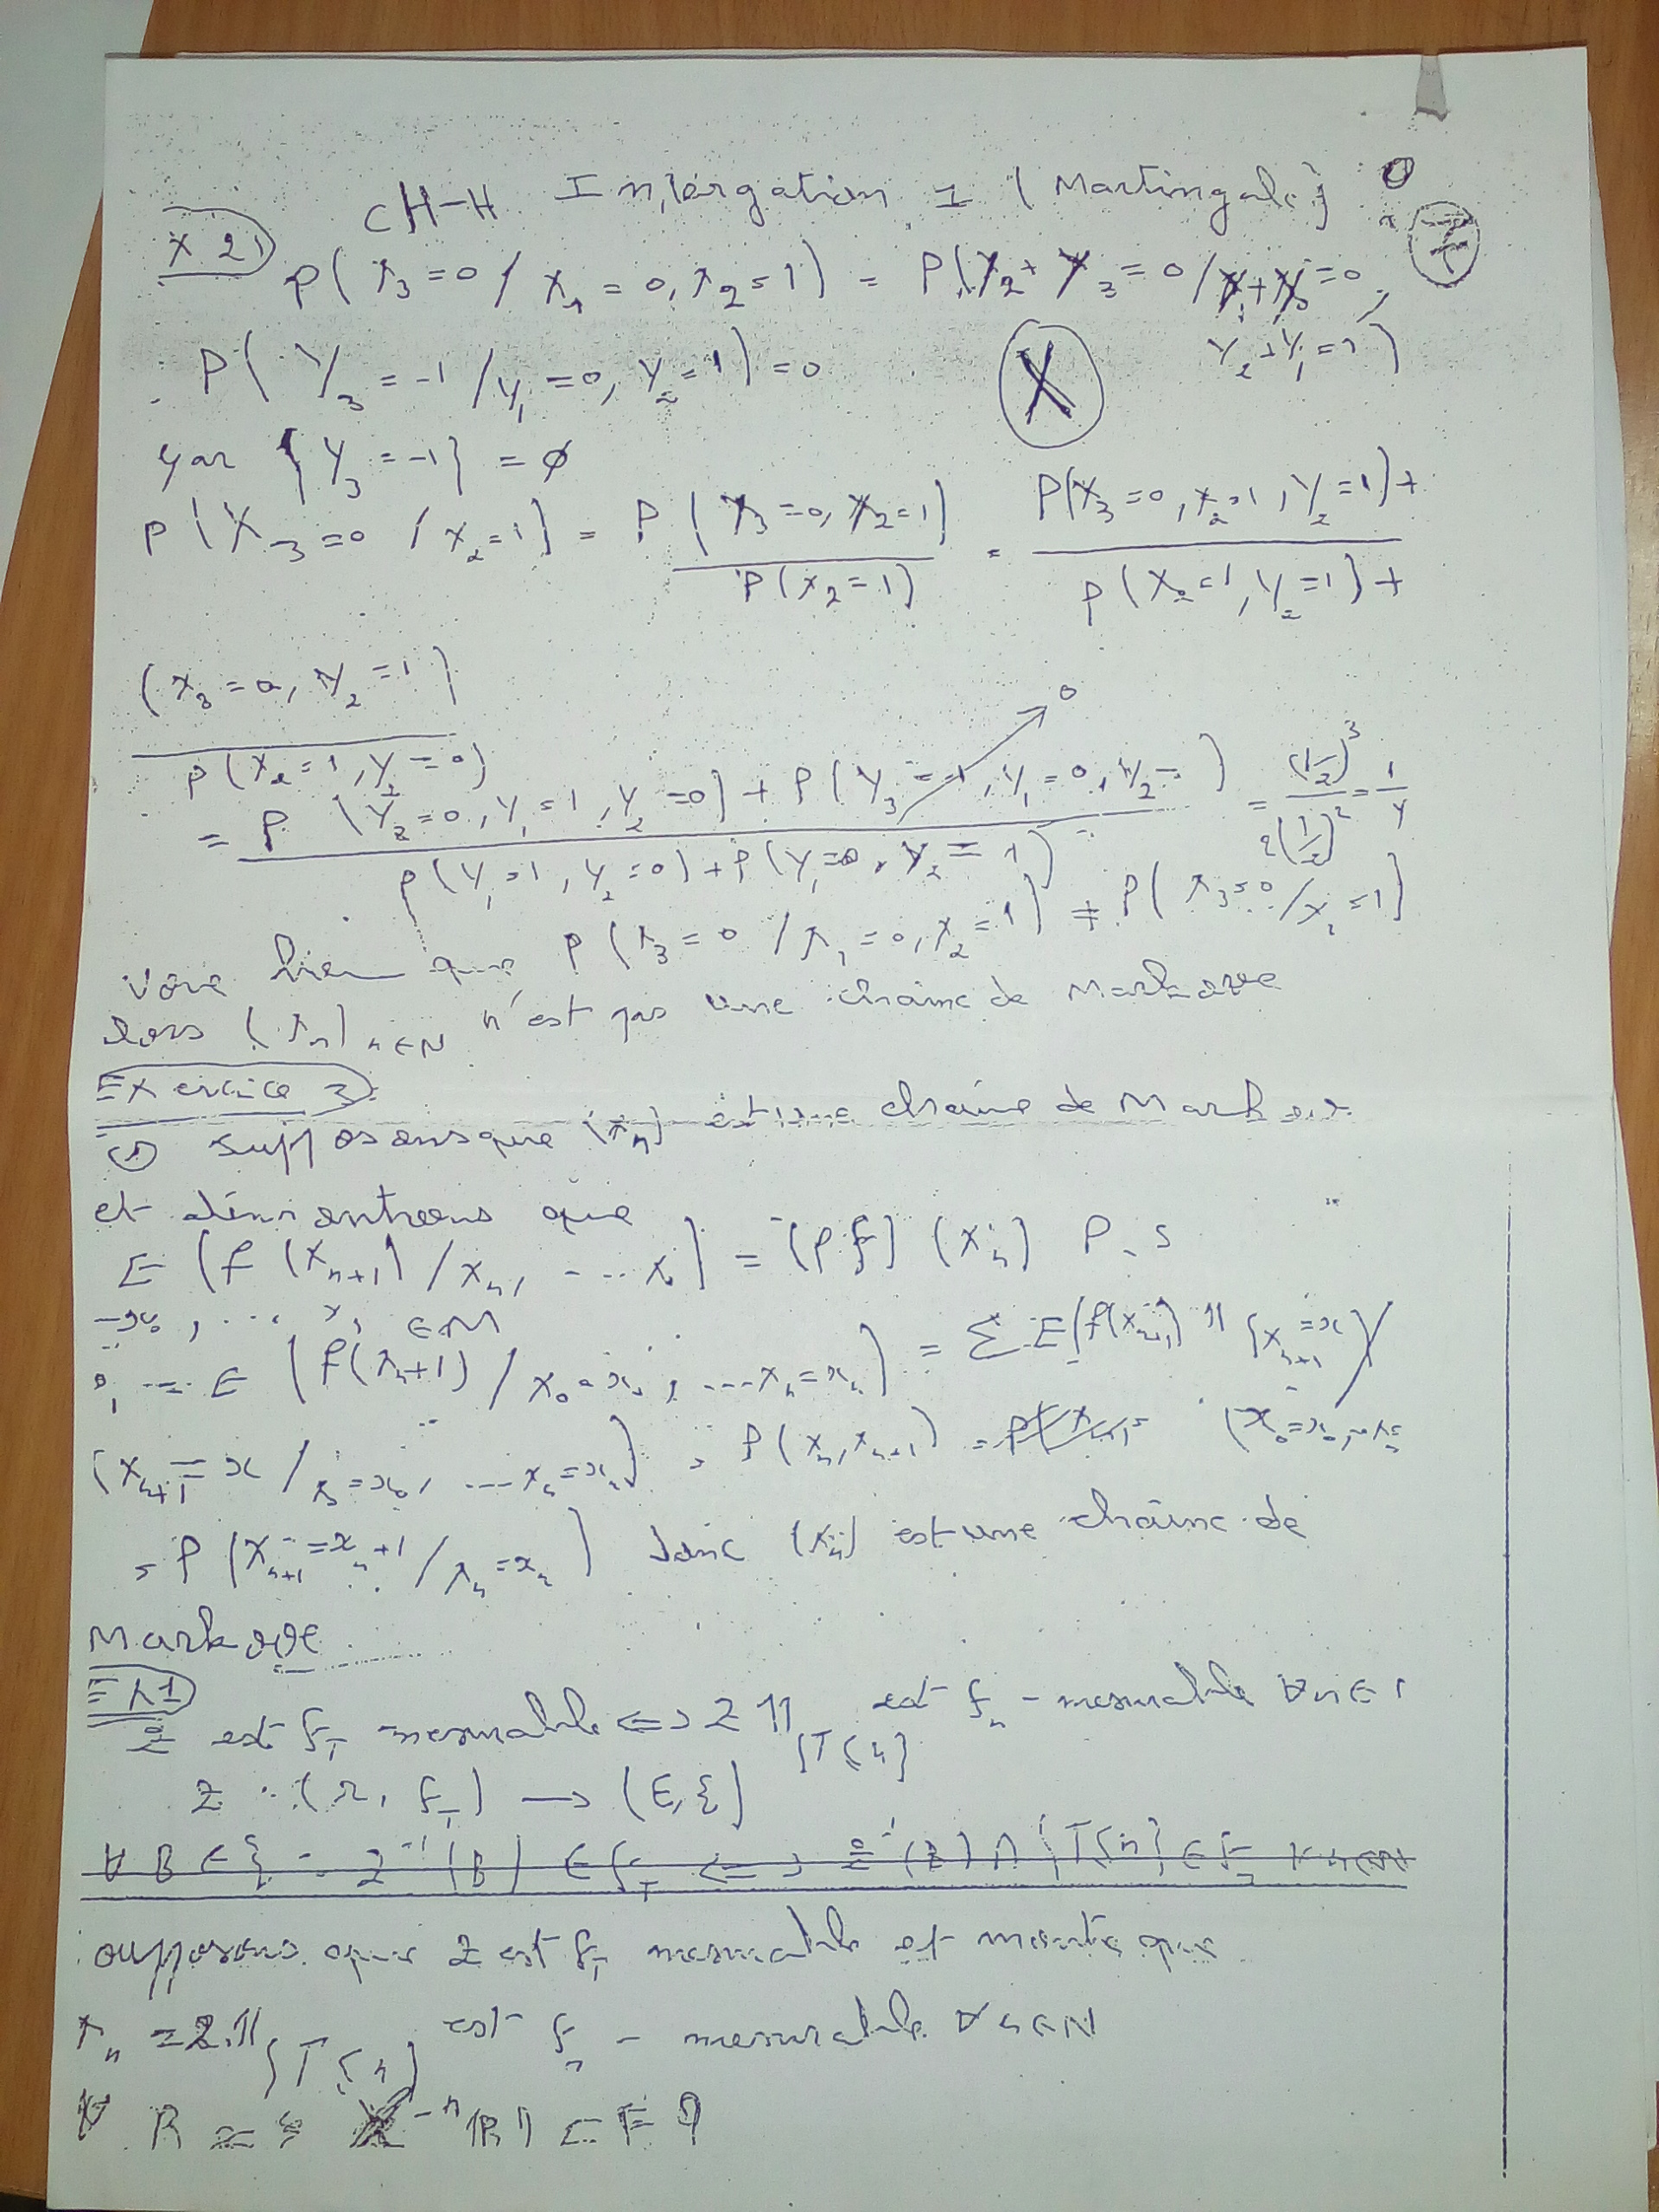 CH-H Intergation I (Martingale)
X 2) P(X_3=0/X_1=0,X_2=1) = P(Y_2+Y_3=0/Y_1+Y_0=0,
Y_2+Y_1=1)
P(Y_3=-1/Y_1=0,Y_2=1)=0
{Y_3=-1}=∅
P(X_3=0/X_2=1) = P(X_3=0,X_2=1)/P(X_2=1) = P(X_3=0,X_2=1,Y_2=1)+ / P(X_2=1,Y_2=1)+
(X_3=0,Y_2=1)
P(X_2=1,Y_2=0)
= P(Y_3=0,Y_1=1,Y_2=0)+P(Y_3=-1,Y_1=0,Y_2= ) → 0 / P(Y_1=1,Y_2=0)+P(Y_1=0,Y_2=1) = (1/2)^3 / 2(1/2)^2 = 1/4
bien que P(X_3=0/X_1=0,X_2=1) ≠ P(X_3=0/X_2=1)
(X_n)_{n∈N} n'est pas une chaîne de Markove
Exercice 3
① supposons que (X_n) est une chaîne de Markov
et démontrons que
E(f(X_{n+1})/X_n, ...X_0] = (Pf)(X_n) P.S
= E(f(X_{n+1})/X_0=x_0, ...X_n=x_n) = Σ E(f(X_{n+1}) 1{X_{n+1}=x}/
(X_{n+1}=x/X_0=x_0, ...X_n=x_n) = P(x_n,x_{n+1})
= P(X_{n+1}=x_{n+1}/X_n=x_n) donc (X_n) est une chaîne de
Markove
EX1
Z est F_T mesurable ⟺ Z 1_{T≤n} est F_n - mesurable ∀n∈
Z : (Ω, F_T) → (E,ξ)
∀B∈ξ : Z^{-1}(B) ∈ F_T ⟺ Z^{-1}(B) ∩ {T≤n} ∈ F_n ∀n∈N
supposons que Z est F_T mesurable et montre que
X_n = Z.1_{T≤n} est F_n - mesurable ∀n∈N